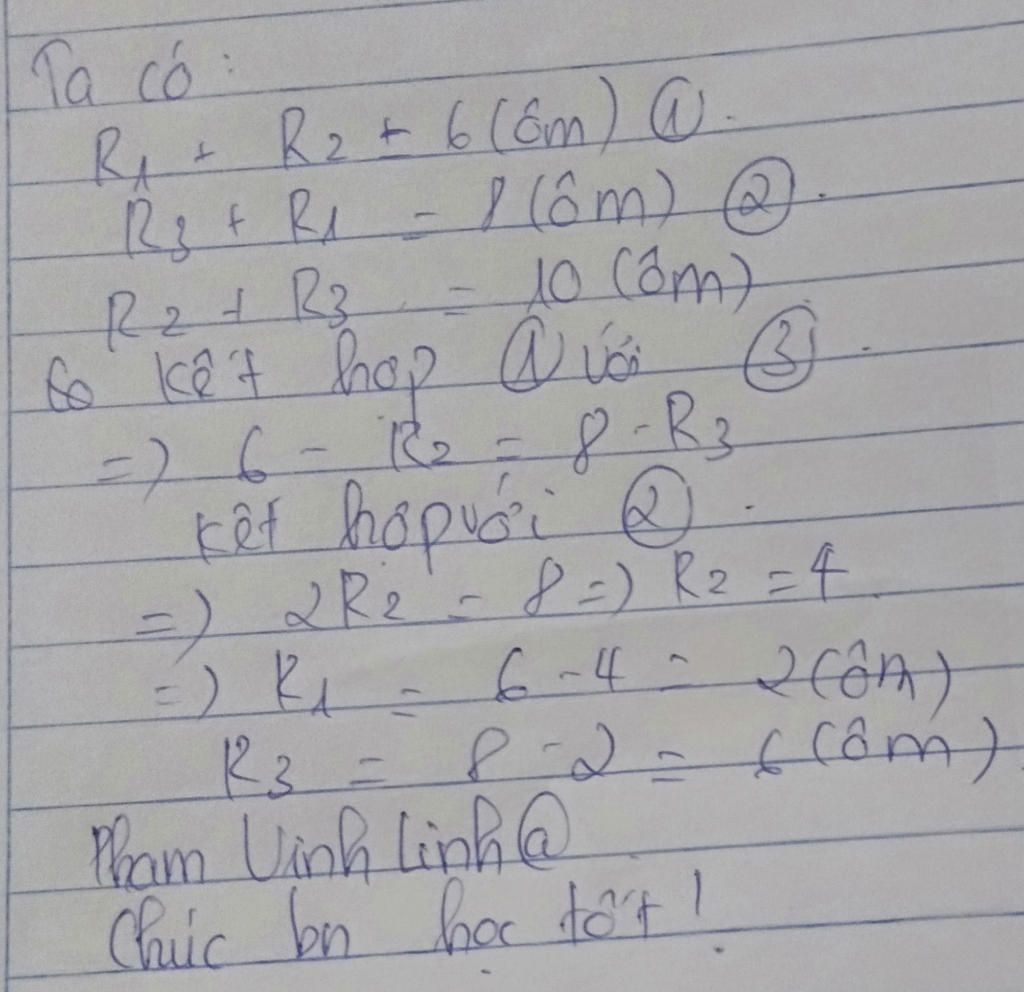 Ta có:
R1 + R2 + 6 (ôm) ①.
R3 + R1 = 8 (ôm) ②.
R2 + R3 = 10 (ôm)
kết hợp ① với ③.
=) 6 - R2 = 8 - R3
kết hợp với ②.
=) 2R2 = 8 =) R2 = 4
=) R1 = 6 - 4 = 2 (ôm)
R3 = 8 - 2 = 6 (ôm)
Pham Vinh Linh @
Chúc bn học tốt!